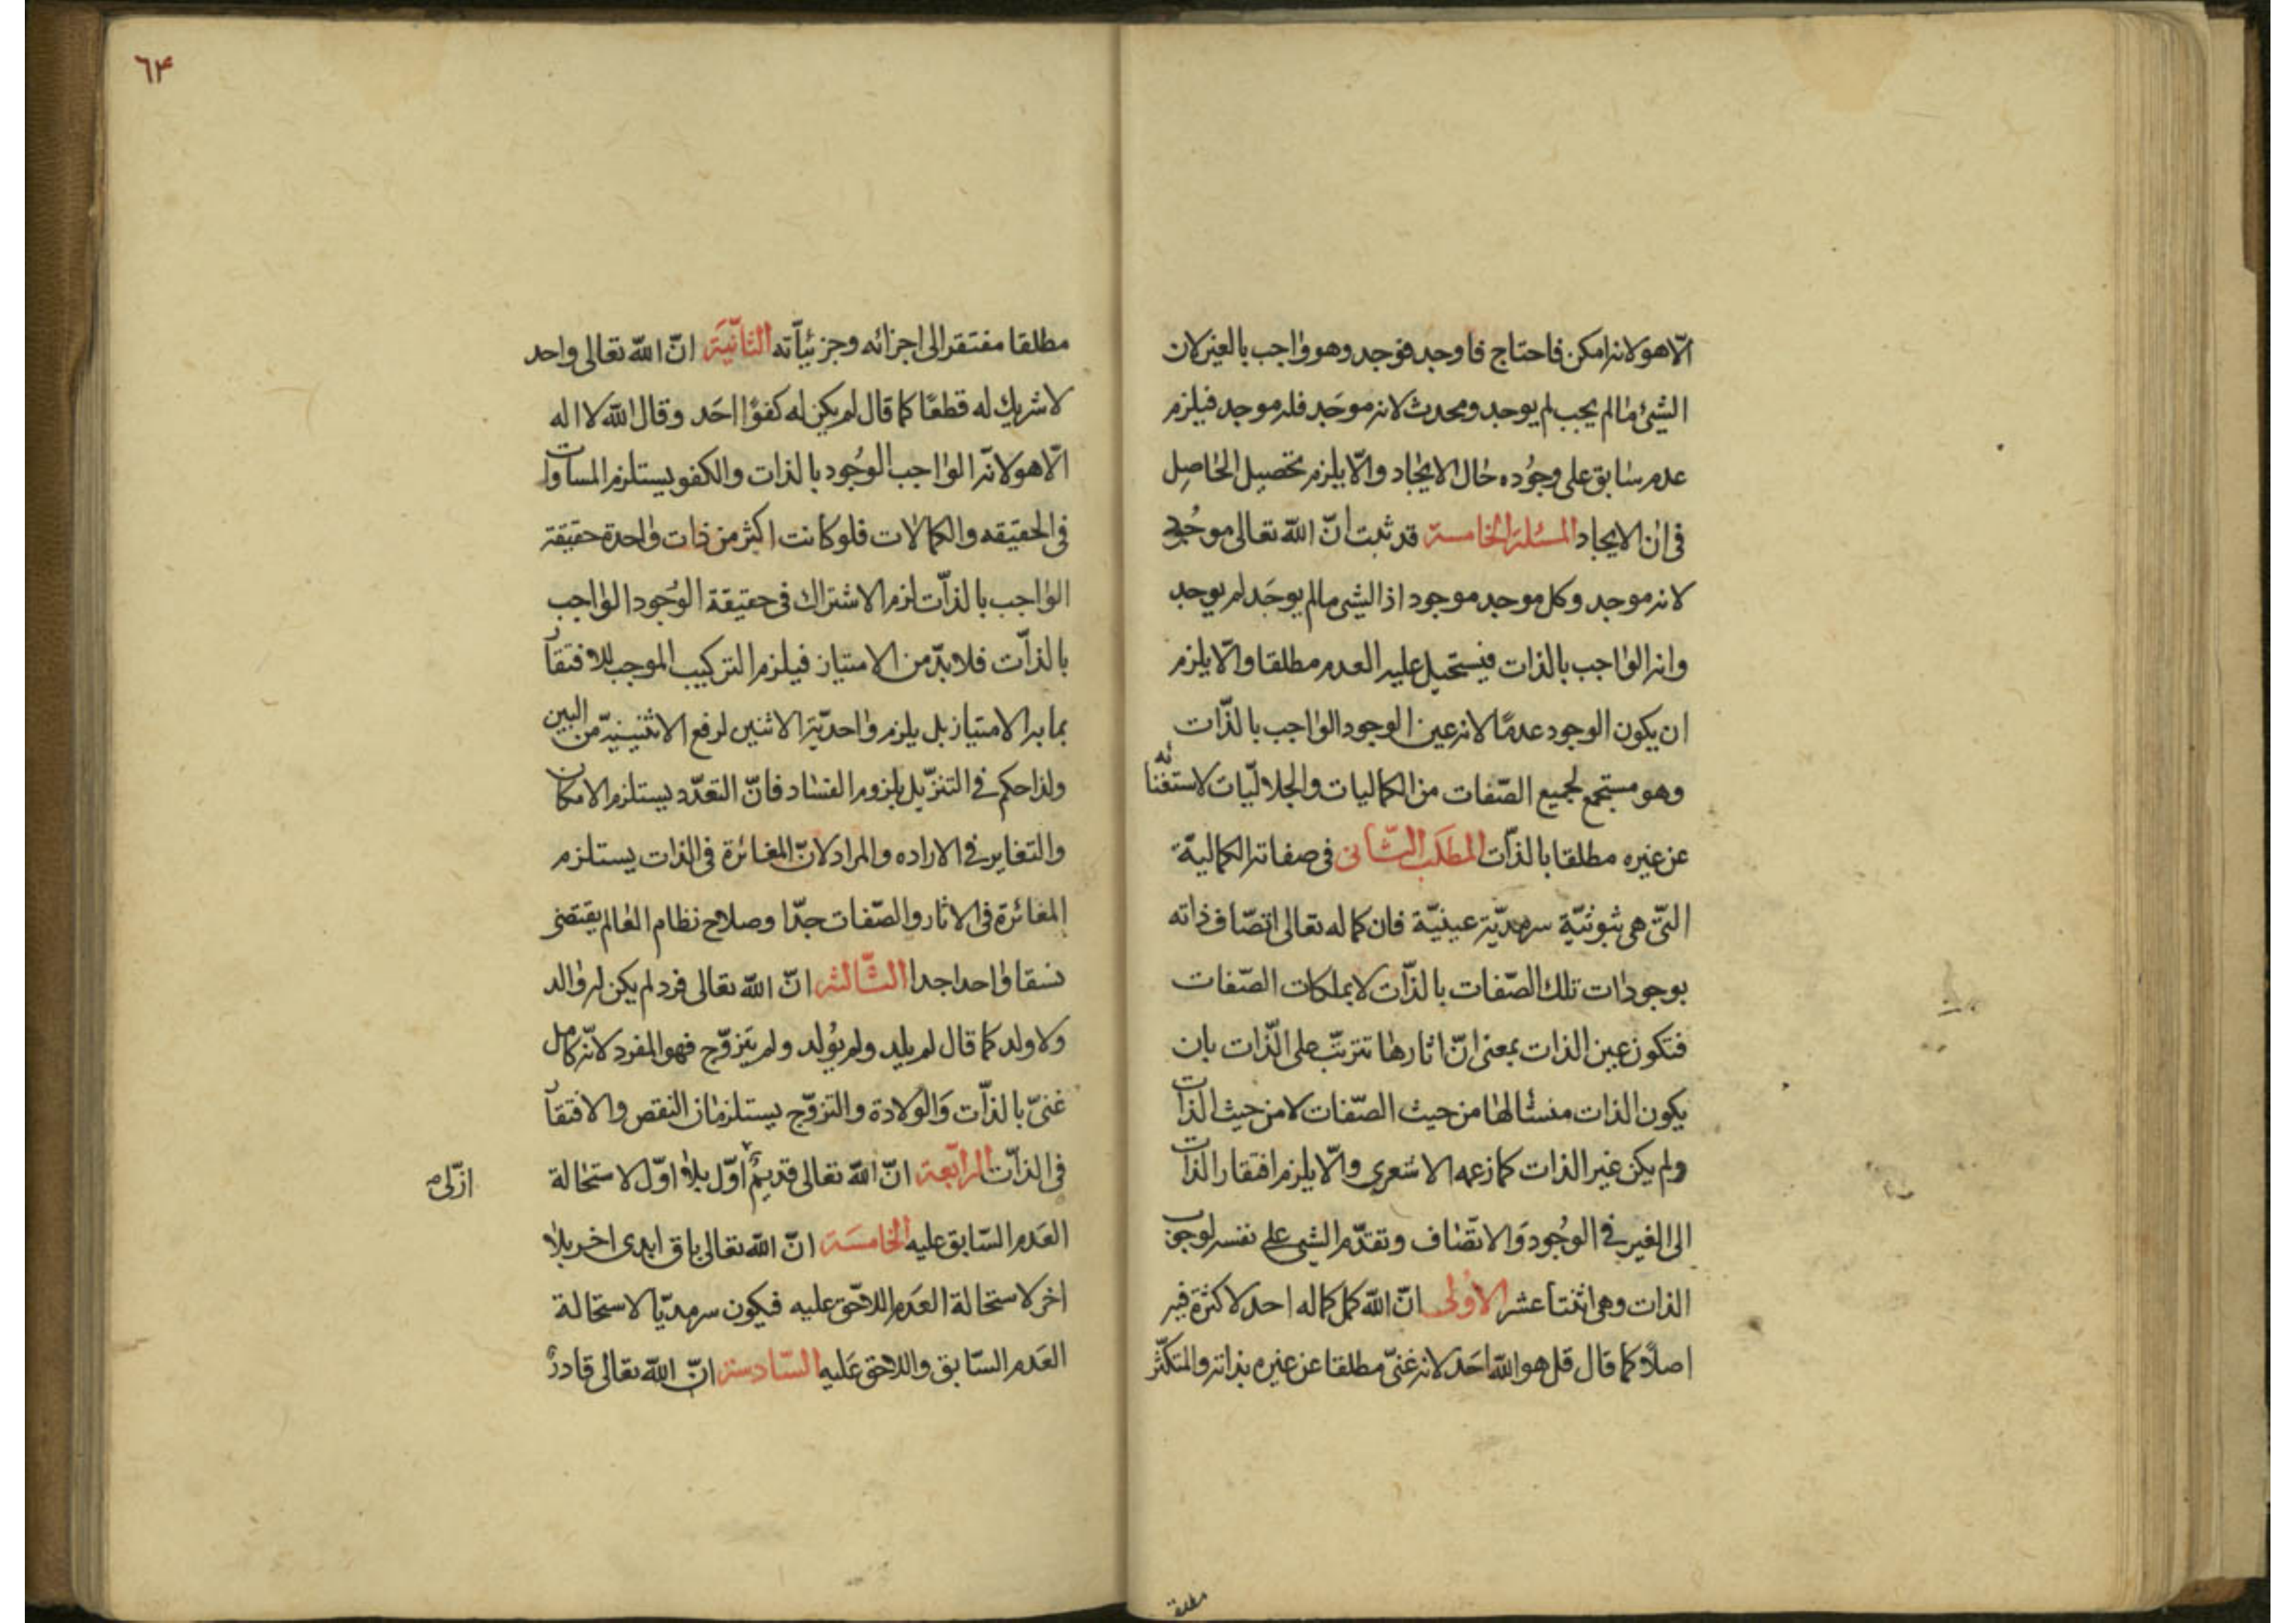 الّا هو لانه امكن فاحتاج فاوجد فوجد وهو واجب بالغير لان
الشئ ما لم يجب لم يوجد ومحدث لانه موجَد فله موجد فيلزم
عدم سابق على وجُوده حال الايجاد والّا يلزم تحصيل الحاصِل
فى ان الايجاد المسئلة الخامسة قد ثبت انّ الله تعالى موجُود
لانه موجد وكل موجد موجود اذ الشئ مالم يوجَد لم يوجد
وانه الواجب بالذات فيستحيل عليه العدم مطلقا والّا يلزم
ان يكون الوجود عدمًا لانه عين الوجود الواجب بالذّات
وهو مستجمع لجميع الصّفات من الكماليات والجلاليّات لاستغنائه
عن غيره مطلقا بالذّات المطلَب الثّانى فى صفاته الكماليّة
التّى هى ثبوتيّة سرمديّة عينيّة فان كماله تعالى اتصّاف ذاته
بوجودات تلك الصّفات بالذّات لا بملكات الصّفات
فتكون عين الذات بمعنى انّ اثارها تترتّب على الذّات بان
يكون الذات منشأ لها من حيث الصّفات لا من حيث الذات
ولم يكن غير الذات كما زعمه الاشعرى والّا يلزم افتقار الذات
الى الغير فى الوجُود وَالاتصّاف وتقدّم الشئ على نفسه لوجوب
الذات وهى اثنتا عشر الاُولى انّ الله كمل كماله احد لا كثرة فيه
اصلًا كما قال قل هو الله احَد لانه غنىّ مطلقا عن غيره بذاته والمتكثّر
مطلقا
٦٤
مطلقا مفتقر الى اجزائه وجزئيّاته الثانّيَة انّ الله تعالى واحد
لا شريك له قطعًا كما قال لم يكن له كفوًا احَد وقال الله لا اله
الّا هو لانّه الواجب الوجُود بالذات والكفو يستلزم المساوات
فى الحقيقه والكمالات فلو كانت اكثر من ذات واحدة حقيقة
الواجب بالذّات لزم الاشتراك فى حقيقة الوجُود الواجب
بالذّات فلا بدّ من الامتياز فيلزم التركيب الموجب للافتقار
بما به الامتياز بل يلزم واحديّة الاثنين لرفع الاثنينيّة من البين
ولذا حكم فى التنزّيل بلزوم الفساد فانّ التعدّد يستلزم الامكان
والتغاير فى الاراده والمراد لانّ المغائرة فى الذات يستلزم
المغائرة فى الاثار والصّفات جدّا وصلاح نظام العالم يقتضى
نسقا واحدا جدا الثّالثه انّ الله تعالى فرد لم يكن له والد
ولا ولد كما قال لم يلد ولم يُولد ولم يتزوّج فهو المفرد لانّه كامل
غنىّ بالذّات وَالولادة والتزوّج يستلزمان النقص والافتقار
فى الذّات الرابّعة انّ الله تعالى قديمٌ اوّل بلا اوّل لاستحالة
ازلّى
العَدم السّابق عليه الخامسَة انّ الله تعالى باق ابدى اخر بلا
اخر لاستحالة العَدم اللاحق عليه فيكون سرمديّا لاستحالة
العَدم السّابق واللاحق عَليه السّادسة انّ الله تعالى قادرٌ